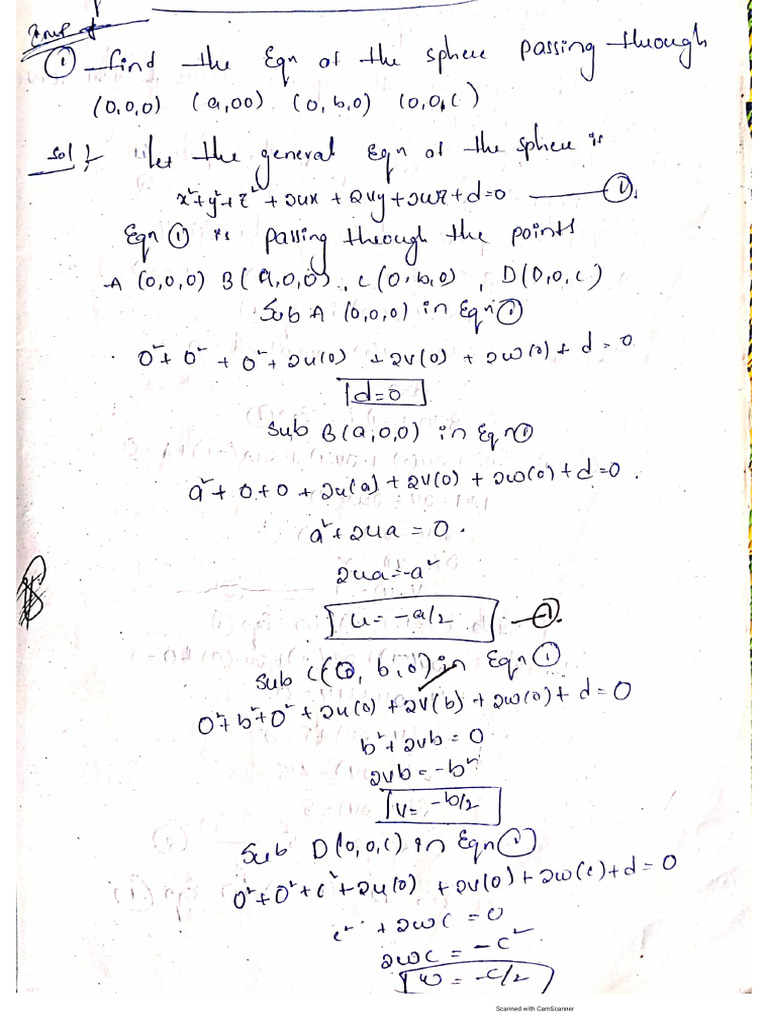 ① Find the Eqn of the sphere passing through
(0,0,0) (a,00) (0,b,0) (0,0,c)
Sol: Let the general Eqn of the sphere is
x²+y²+z²+2ux+2vy+2wz+d=0 —①.
Eqn ① is passing through the points
A (0,0,0) B(a,0,0), C(0,b,0), D(0,0,c)
Sub A (0,0,0) in Eqn ①
0²+0²+0²+2u(0)+2v(0)+2w(0)+d=0
d=0
Sub B(a,0,0) in Eqn ①
a²+0+0+2u(a)+2v(0)+2w(0)+d=0.
a²+2ua=0.
2ua=-a²
u=-a/2 —①.
Sub C(0,b,0) in Eqn ①
0²+b²+0²+2u(0)+2v(b)+2w(0)+d=0
b²+2vb=0
2vb=-b²
v=-b/2
Sub D(0,0,c) in Eqn ①
0²+0²+c²+2u(0)+2v(0)+2w(c)+d=0
c²+2wc=0
2wc=-c²
w=-c/2
Scanned with CamScanner